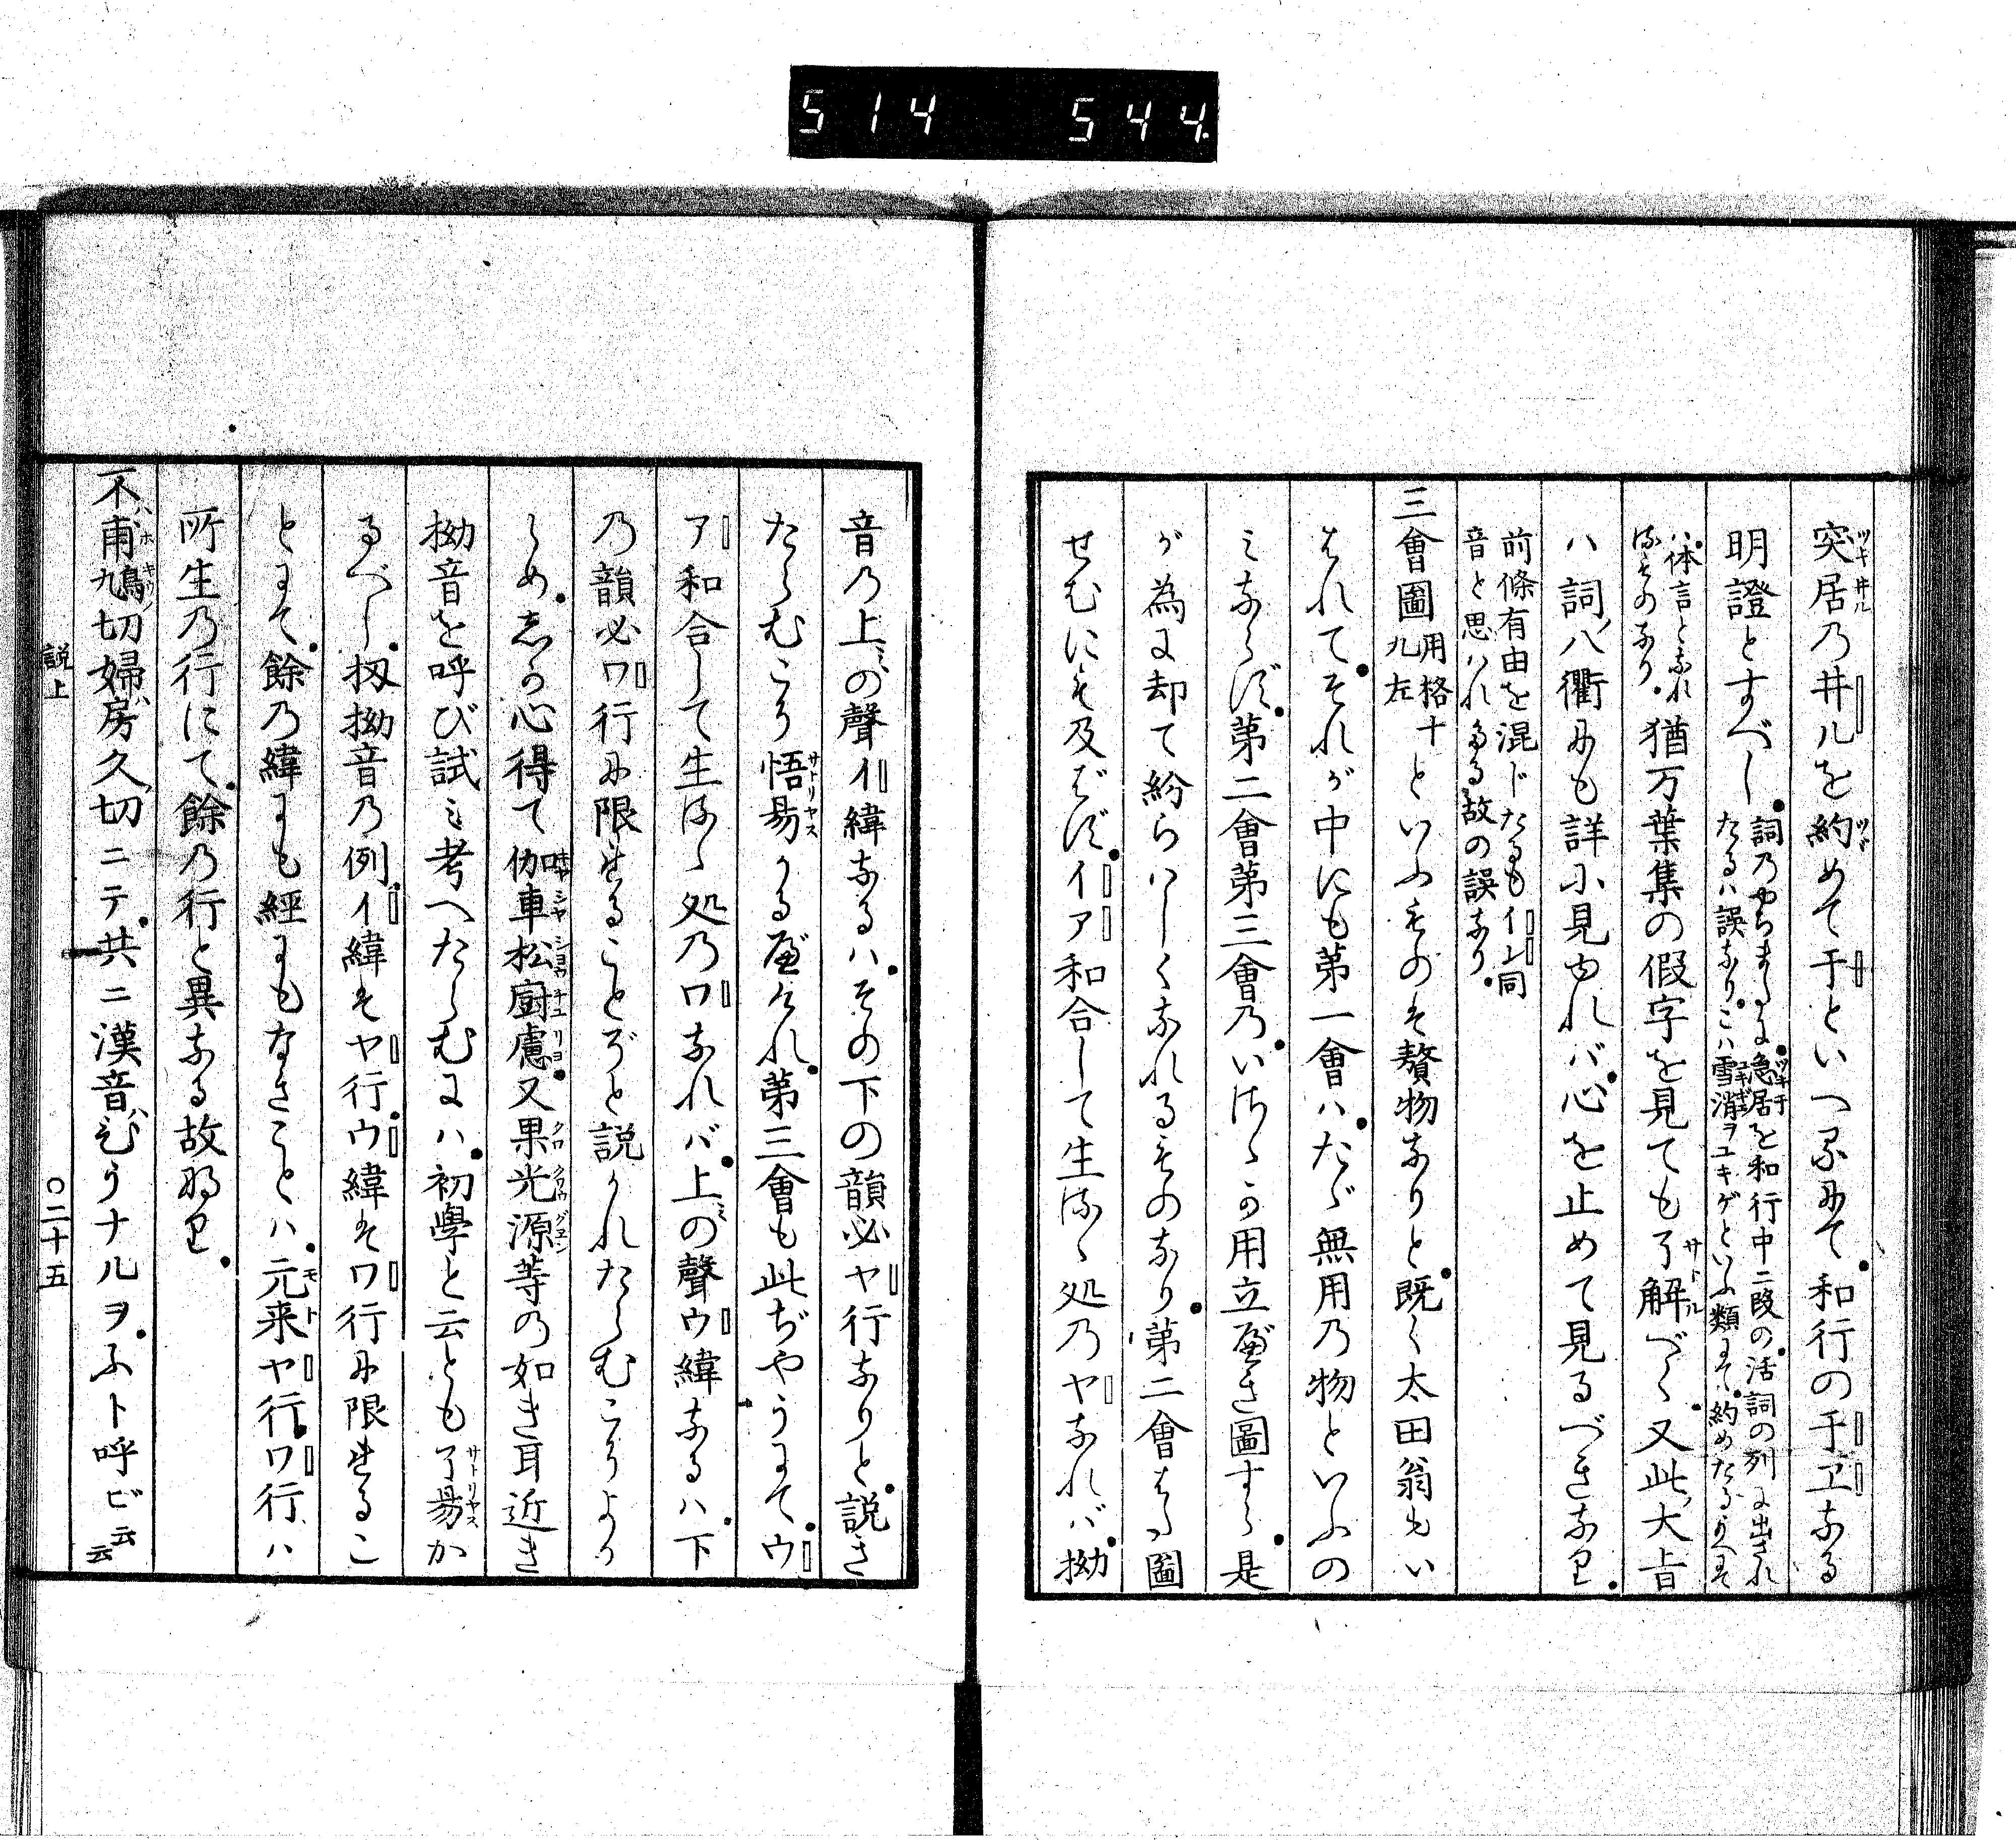 514 544
突居乃井ルを約めて于といへるにて和行の于ヱなる
明證とすべし詞乃やちまたに急居を和行中二段の活詞の列に出され
たるハ誤なりこハ雪消ヲユキゲといふ類にて約めたるうへにて
ハ体言となれ
るものなり猶万葉集の假字を見ても了解べし又此大旨
ハ詞ノ八衢にも詳に見ゆれバ心を止めて見るべきなり
前條有由を混じたるもイ上同
音と思ハれたる故の誤なり
三會圖用格十
九左といふものは贅物なりと既く太田翁もい
はれてそれが中にも第一會ハたゞ無用乃物といふの
ミならず第二會第三會乃いさゝか用立べき圖すら是
が為に却て紛らハしくなれるものなり第二會なる圖
せむにも及ばずイア和合して生ずる処乃ヤなれバ拗
音乃上の聲イ緯なるハその下の韻必ヤ行なりと説き
たらむこそ悟易かるべけれ第三會も此ぢやうにてウ
ア和合して生ずる処乃ワなれバ上の聲ウ緯なるハ下
乃韻必ワ行に限れることぞと説かれたらむこそよか
らめ志か心得て伽車松廚慮又果光源等の如き耳近き
拗音を呼び試ミ考へたらむにハ初學と云とも了易か
るべし扨拗音乃例イ緯はヤ行ウ緯はワ行に限れるこ
とにて餘乃緯にも經にもなきことハ元来ヤ行ワ行ハ
所生乃行にて餘乃行と異なる故なり
不甫鳩切婦房久切ニテ共ニ漢音ひうナルヲふト呼ビ云云
説上
〇二十五